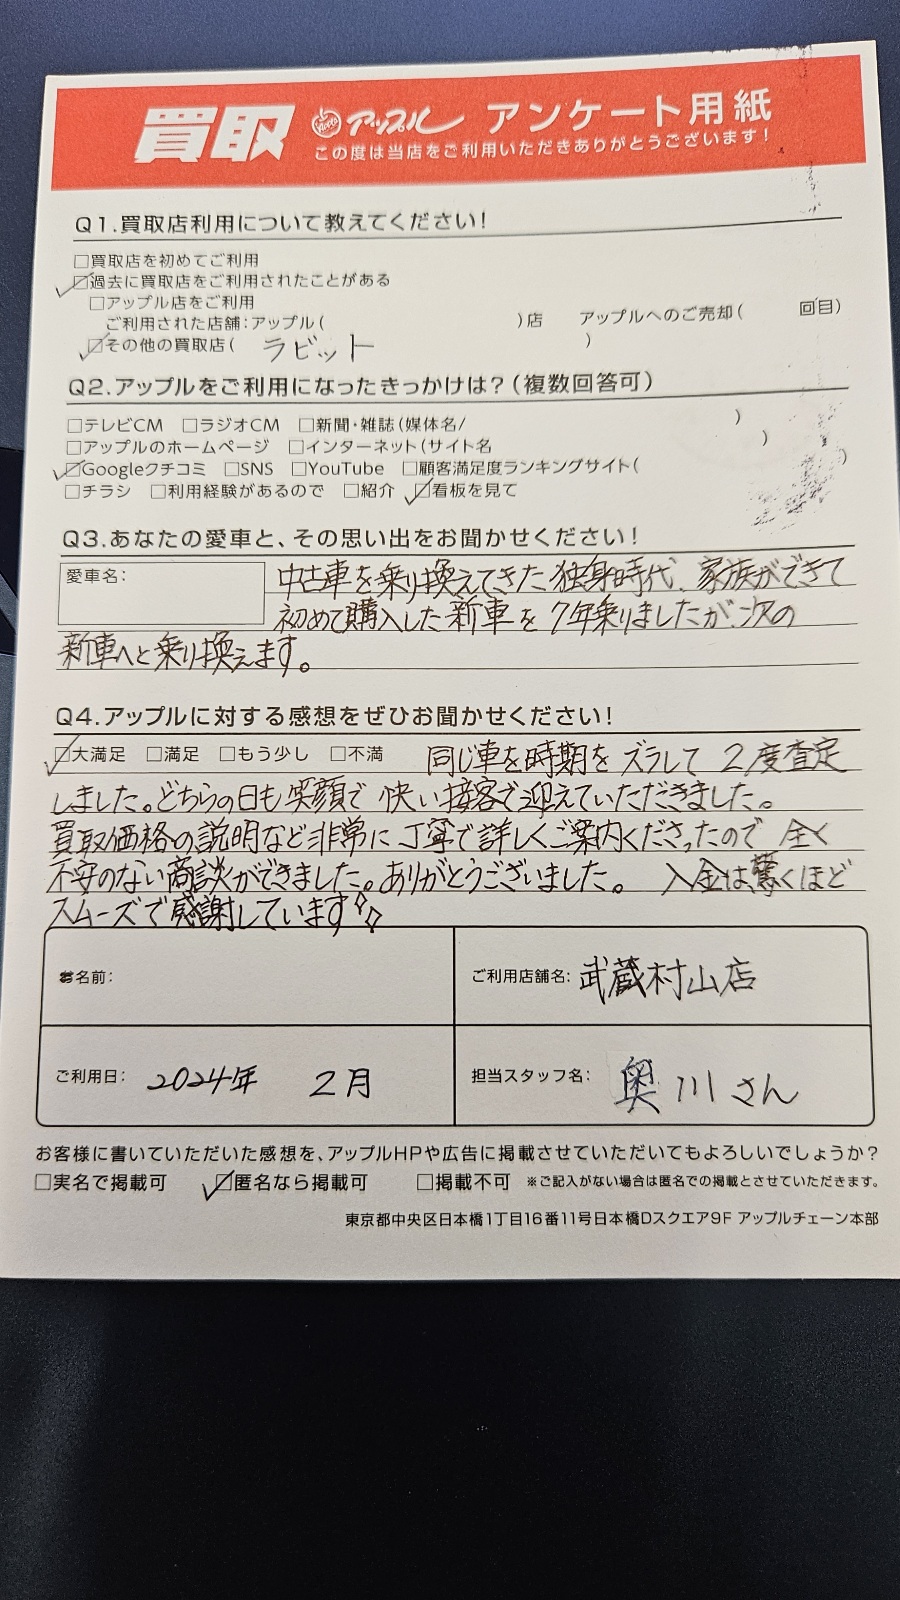 買取 アップル アンケート用紙
この度は当店をご利用いただきありがとうございます!
Q1.買取店利用について教えてください!
□買取店を初めてご利用
☑過去に買取店をご利用されたことがある
□アップル店をご利用
ご利用された店舗:アップル( )店 アップルへのご売却( 回目)
☑その他の買取店( ラビット )
Q2.アップルをご利用になったきっかけは?(複数回答可)
□テレビCM □ラジオCM □新聞・雑誌(媒体名/ )
□アップルのホームページ □インターネット(サイト名 )
☑Googleクチコミ □SNS □YouTube □顧客満足度ランキングサイト( )
□チラシ □利用経験があるので □紹介 ☑看板を見て
Q3.あなたの愛車と、その思い出をお聞かせください!
愛車名: 中古車を乗り換えてきた独身時代、家族ができて
初めて購入した新車を7年乗りましたが、次の
新車へと乗り換えます。
Q4.アップルに対する感想をぜひお聞かせください!
☑大満足 □満足 □もう少し □不満 同じ車を時期をズラして2度査定
しました。どちらの日も笑顔で快い接客で迎えていただきました。
買取価格の説明など非常に丁寧で詳しくご案内くださったので全く
不安のない商談ができました。ありがとうございました。 入金は、驚くほど
スムーズで感謝しています
お名前: ご利用店舗名: 武蔵村山店
ご利用日: 2024年 2月 担当スタッフ名: 奥川さん
お客様に書いていただいた感想を、アップルHPや広告に掲載させていただいてもよろしいでしょうか?
□実名で掲載可 ☑匿名なら掲載可 □掲載不可 ※ご記入がない場合は匿名での掲載とさせていただきます。
東京都中央区日本橋1丁目16番11号日本橋Dスクエア9F アップルチェーン本部